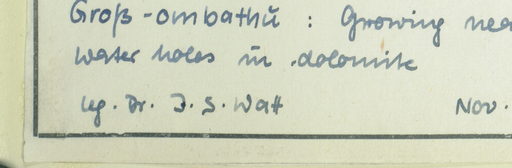 Groß-ombathū : Growing nea
water holes in dolomite
leg. Dr. J. S. Watt Nov.